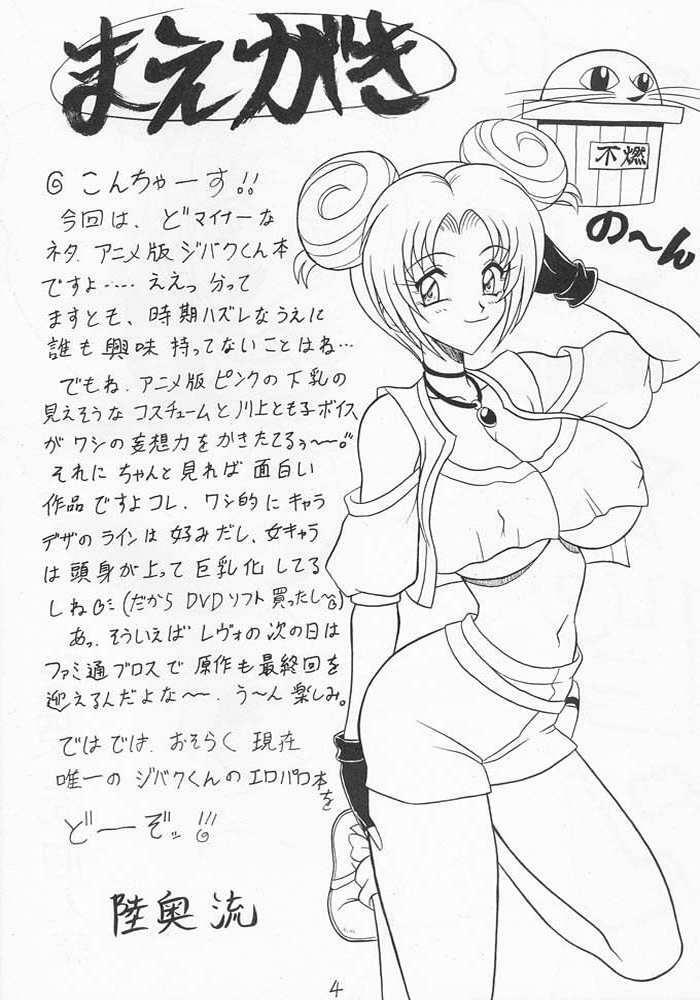 まえがき
不燃
の〜ん
◎ こんちゃーす!!
今回は、どマイナーな
ネタ、アニメ版 ジバクくん本
ですよ‥‥ ええっ 分って
ますとも、時期ハズレなうえに
誰も興味 持ってないことはね…
でもね、アニメ版 ピンクの下乳の
見えそうな コスチュームと川上とも子ボイス
が ワシの妄想力をかきたてるぅ〜〜。
それに ちゃんと見れば 面白い
作品ですよコレ、ワシ的に キャラ
デザのラインは好みだし、女キャラ
は 頭身が上って 巨乳化してる
しね (だから DVDソフト買ったし〜)
あっ、そういえば レヴォの次の日は
ファミ通ブロスで 原作も最終回を
迎えるんだよな〜〜、う〜ん 楽しみ。
ではでは、おそらく 現在
唯一の ジバクくんのエロパロ本を
ど——ぞッ!!!
陸奥 流
4